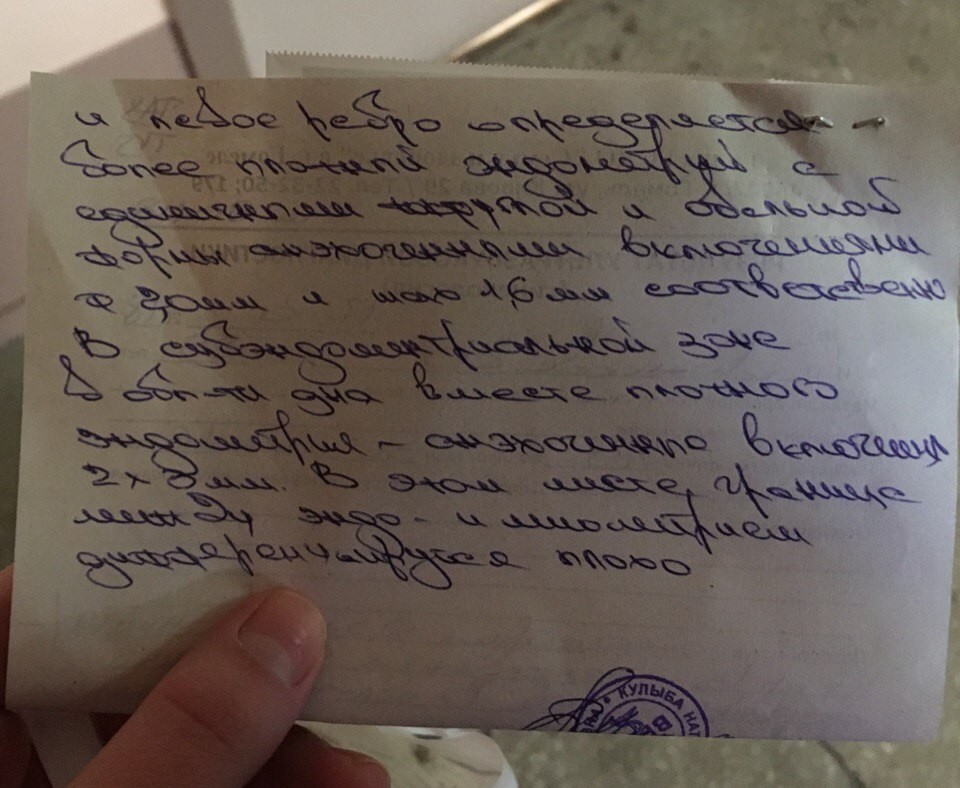 и левое ребро определяется
более плотный эндометрий с
единичными круглой и овальной
формы анэхогенными включениями
30мм и 16 мм соответственно
В субэндометриальной зоне
в обл-ти дна вместе плотного
эндометрия – анэхогенно включения
2х3мм. В этом месте граница
между эндо- и миометрием
дифференцируется плохо
КУЛЫБА НАТ